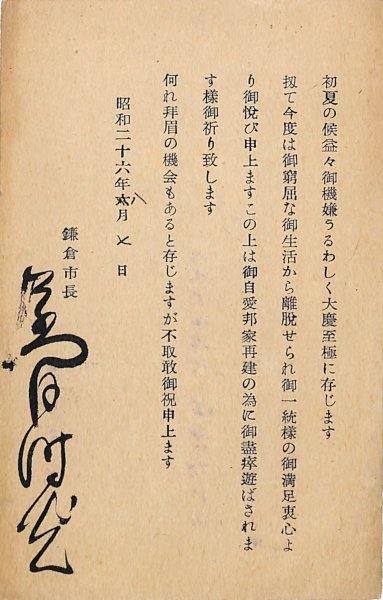 初夏の候益々御機嫌うるわしく大慶至極に存じます
扨て今度は御窮屈な御生活から離脱せられ御一統様の御満足衷心よ
り御悦び申上ますこの上は御自愛邦家再建の為に御盡瘁遊ばされま
す様御祈り致します
何れ拝眉の機会もあると存じますが不取敢御祝申上ます
昭和二十六年六八月七日
鎌倉市長